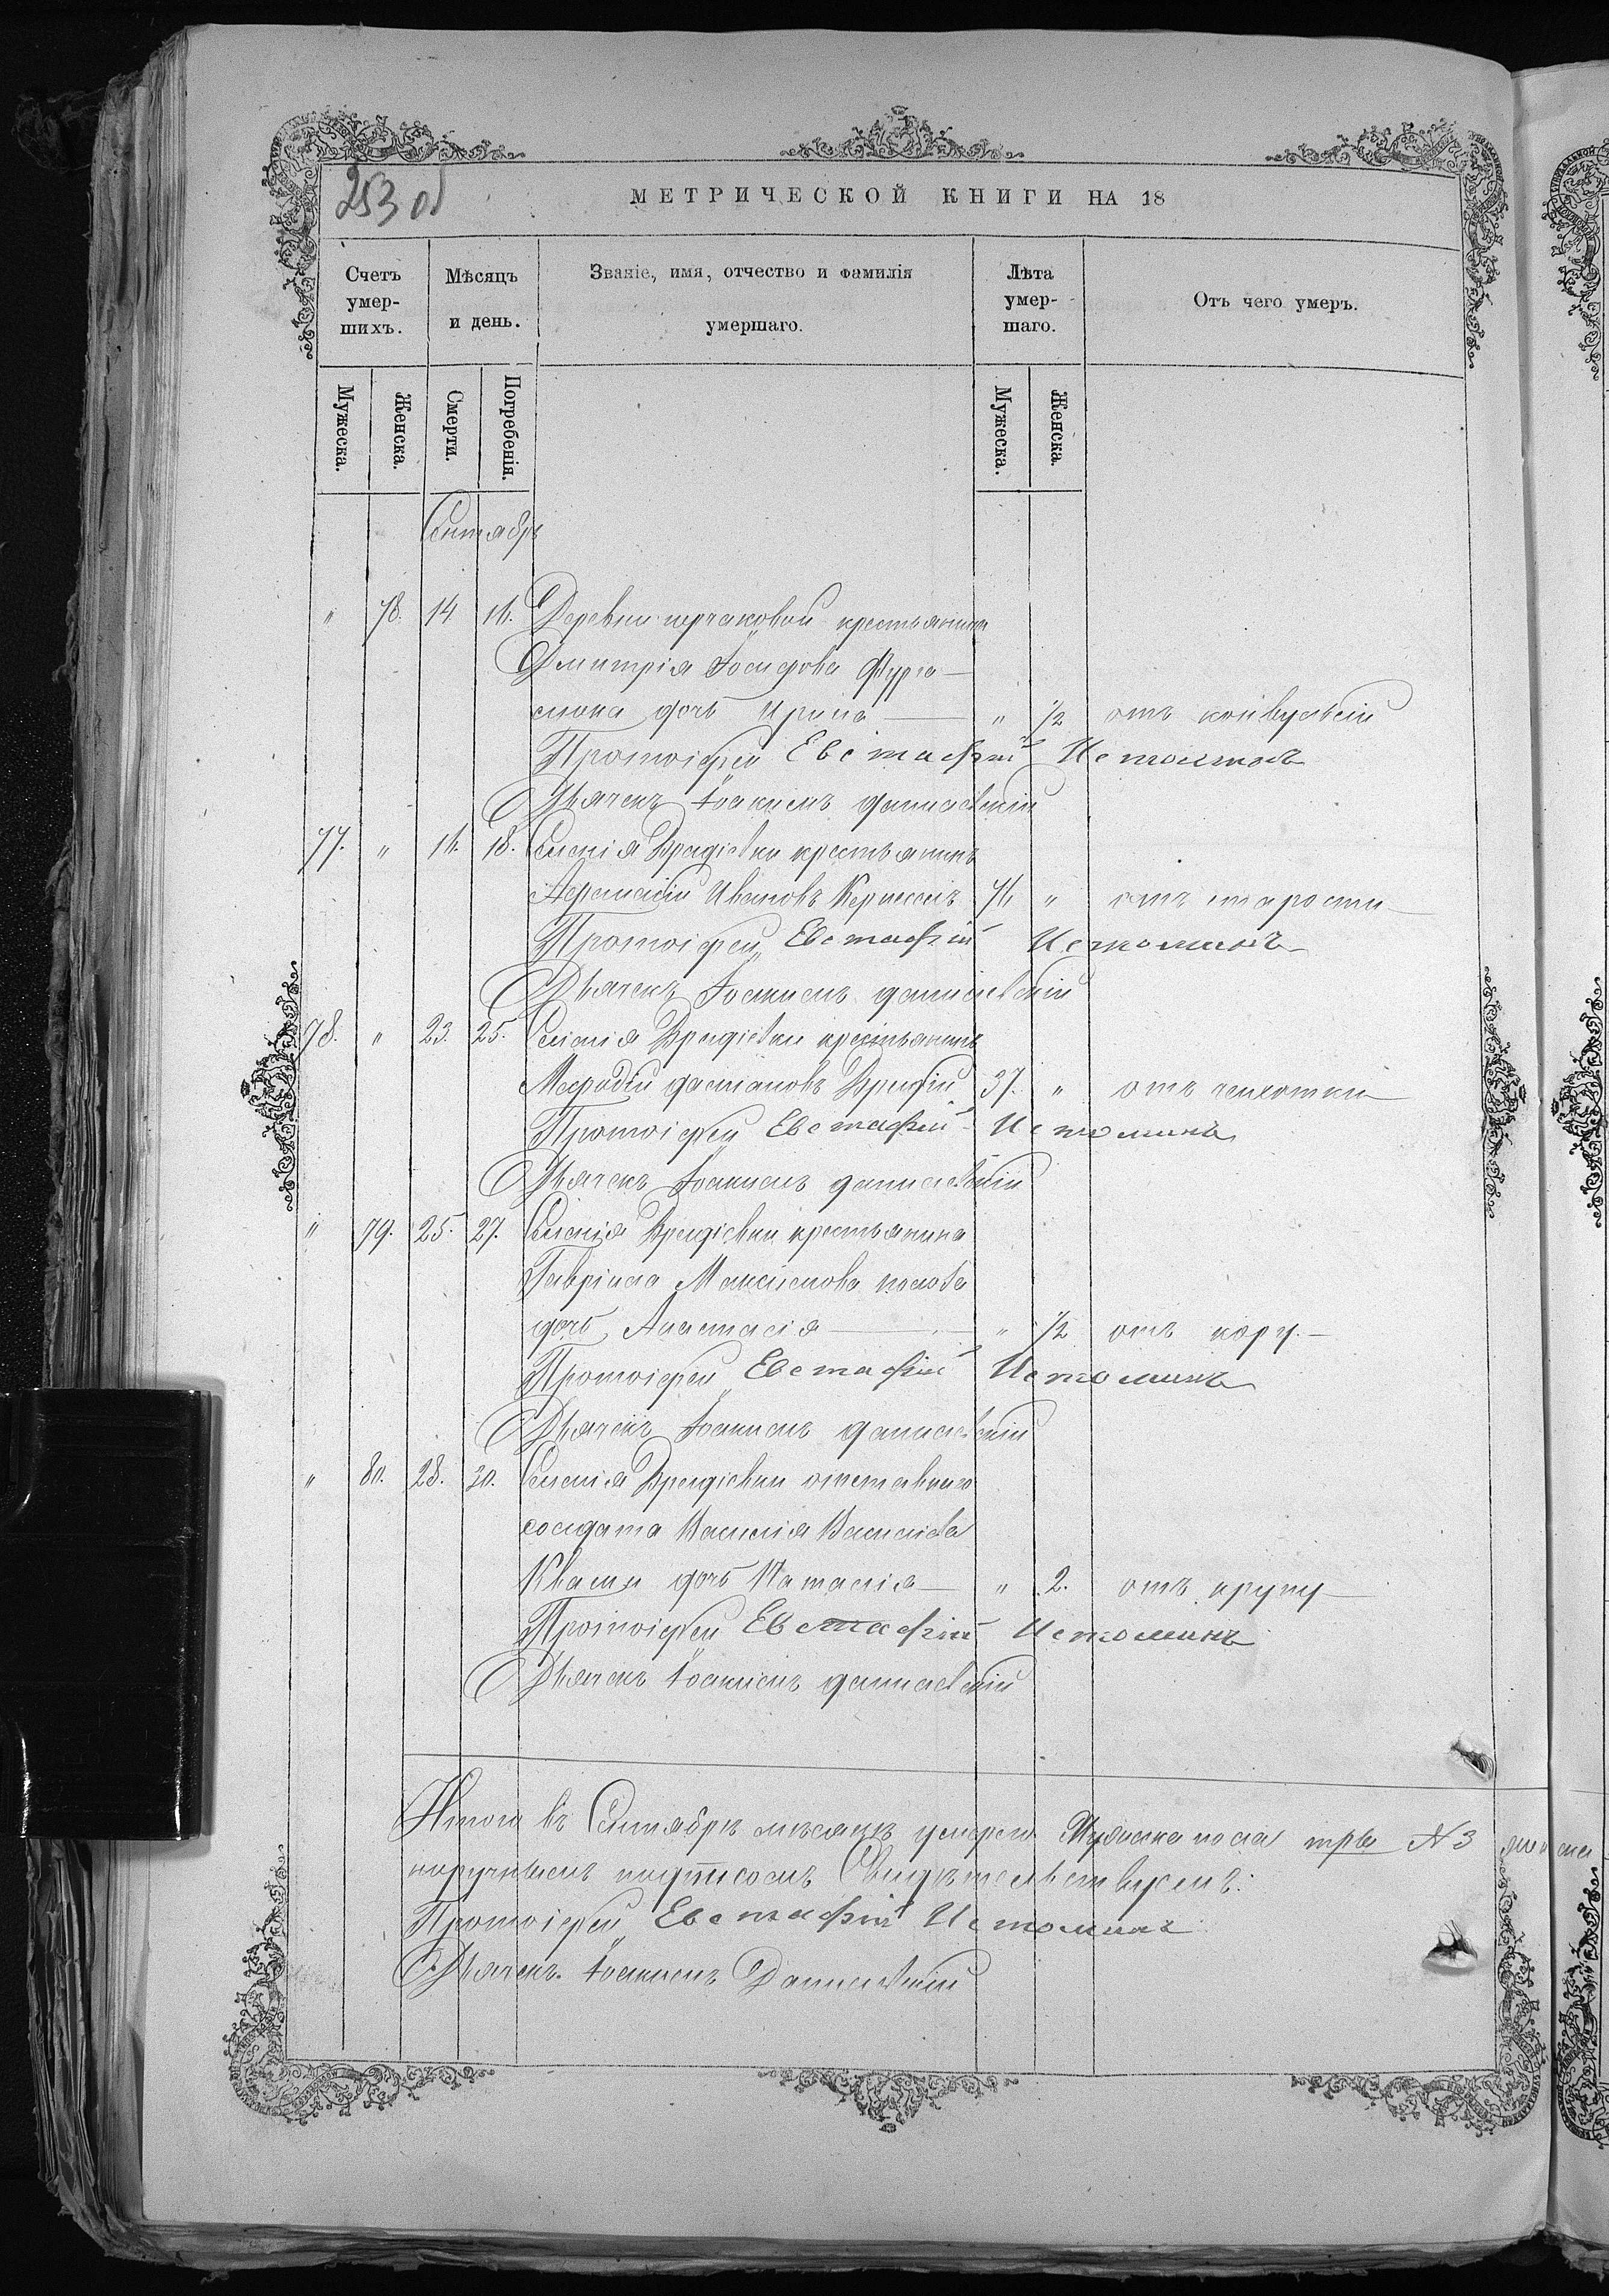 253 об
МЕТРИЧЕСКОЙ КНИГИ НА 18
Счетъ умершихъ.
Мѣсяцъ и день.
Званіе, имя, отчество и фамилія умершаго.
Лѣта умершаго.
Отъ чего умеръ.
Мужеска. Женска. Смерти. Погребенія. Мужеска. Женска.
Сентябрь
" 78. 14 16. Деревни крестьянина
Дмитрія Іосифова
дочь Ирина — " 1/2 отъ конвульсій
Протоіерей Евстафій Истоминъ
Дьячекъ Іоакимъ Данилевскій
77. " 16. 18. Селенія крестьянинъ
Афанасій Ивановъ 76 " отъ старости
Протоіерей Евстафій Истоминъ
Дьячекъ Іоакимъ Данилевскій
78. " 23. 25. Селенія крестьянинъ
Мефодій 37. " отъ чихотки
Протоіерей Евстафій Истоминъ
Дьячекъ Іоакимъ Данилевскій
" 79. 25. 27. Селенія крестьянина
Гавріила Максимова
дочь Анастасія — " 1/2 отъ кору —
Протоіерей Евстафій Истоминъ
Дьячекъ Іоакимъ Данилевскій
" 80. 28. 30. Селенія отставнаго
солдата Василія Васильева
Кваши дочь Наталія — " 2. отъ крупу
Протоіерей Евстафій Истоминъ
Дьячекъ Іоакимъ Данилевскій
Итого въ Сентябрѣ мѣсяцѣ умерло Мужеска пола три № 3
подписомъ Свидѣтельствуемъ:
Протоіерей Евстафій Истоминъ
Дьячекъ Іоакимъ Данилевскій